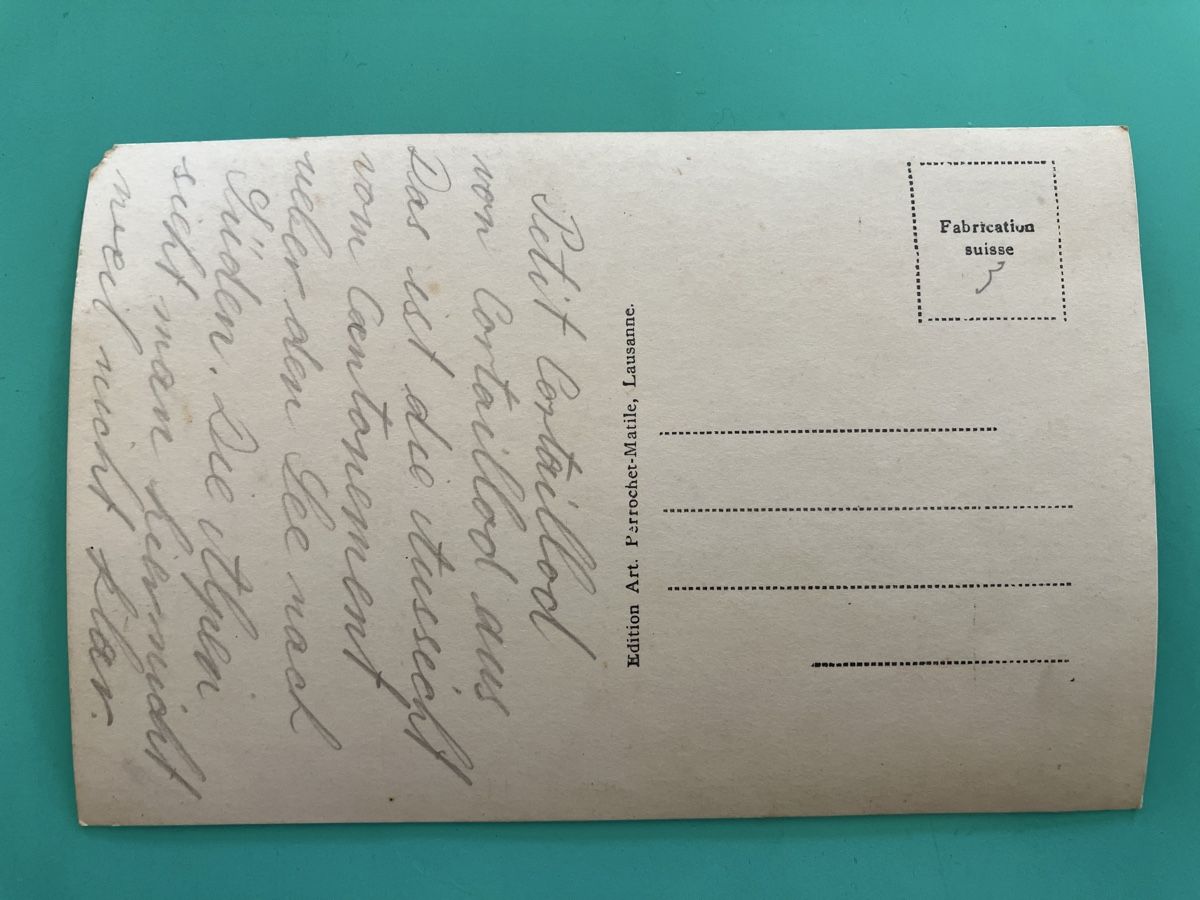 Petit Cortaillod
von Cortaillod aus
Das ist die Aussicht
vom Cantonement
ueber den See nach
Süden. Die Alpen
sieht man hier nicht
weil nicht klar.
Edition Art. Perrochet-Matile, Lausanne.
Fabrication
suisse